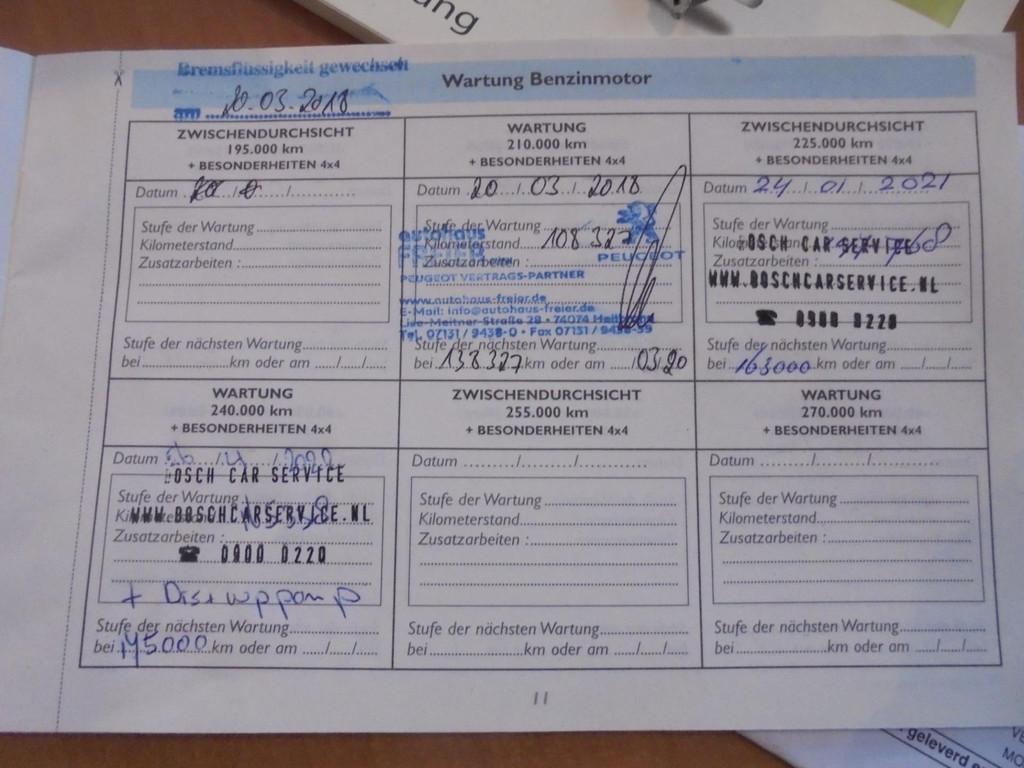 ung
Bremsflüssigkeit gewechselt
am 20.03.2018
Wartung Benzinmotor
ZWISCHENDURCHSICHT
195.000 km
+ BESONDERHEITEN 4x4
Datum
Stufe der Wartung
Kilometerstand
Zusatzarbeiten :
Stufe der nächsten Wartung
bei km oder am ...../...../.....
WARTUNG
210.000 km
+ BESONDERHEITEN 4x4
Datum 20 / 03 / 2018
Stufe der Wartung
Kilometerstand 108 327
Zusatzarbeiten :
autohaus
FREIER
PEUGEOT
PEUGEOT VERTRAGS-PARTNER
www.autohaus-freier.de
E-Mail: info@autohaus-freier.de
Lise-Meitner-Straße 28 • 74074 Heilbronn
Tel. 07131 / 9438-0 • Fax 07131 / 9438-39
Stufe der nächsten Wartung
bei 138.327 km oder am 03.20
ZWISCHENDURCHSICHT
225.000 km
+ BESONDERHEITEN 4x4
Datum 24 / 01 / 2021
Stufe der Wartung
Zusatzarbeiten :
BOSCH CAR SERVICE
WWW.BOSCHCARSERVICE.NL
☎ 0900 0220
Stufe der nächsten Wartung
bei 163000 km oder am ...../...../.....
WARTUNG
240.000 km
+ BESONDERHEITEN 4x4
Datum 2022
BOSCH CAR SERVICE
Stufe der Wartung
WWW.BOSCHCARSERVICE.NL
Zusatzarbeiten :
☎ 0900 0220
Stufe der nächsten Wartung
bei 175.000 km oder am ...../...../.....
ZWISCHENDURCHSICHT
255.000 km
+ BESONDERHEITEN 4x4
Datum ........../........../..........
Stufe der Wartung
Kilometerstand
Zusatzarbeiten :
Stufe der nächsten Wartung
bei km oder am ...../...../.....
WARTUNG
270.000 km
+ BESONDERHEITEN 4x4
Datum ........../........../..........
Stufe der Wartung
Kilometerstand
Zusatzarbeiten :
Stufe der nächsten Wartung
bei km oder am ...../...../.....
11
geleverd